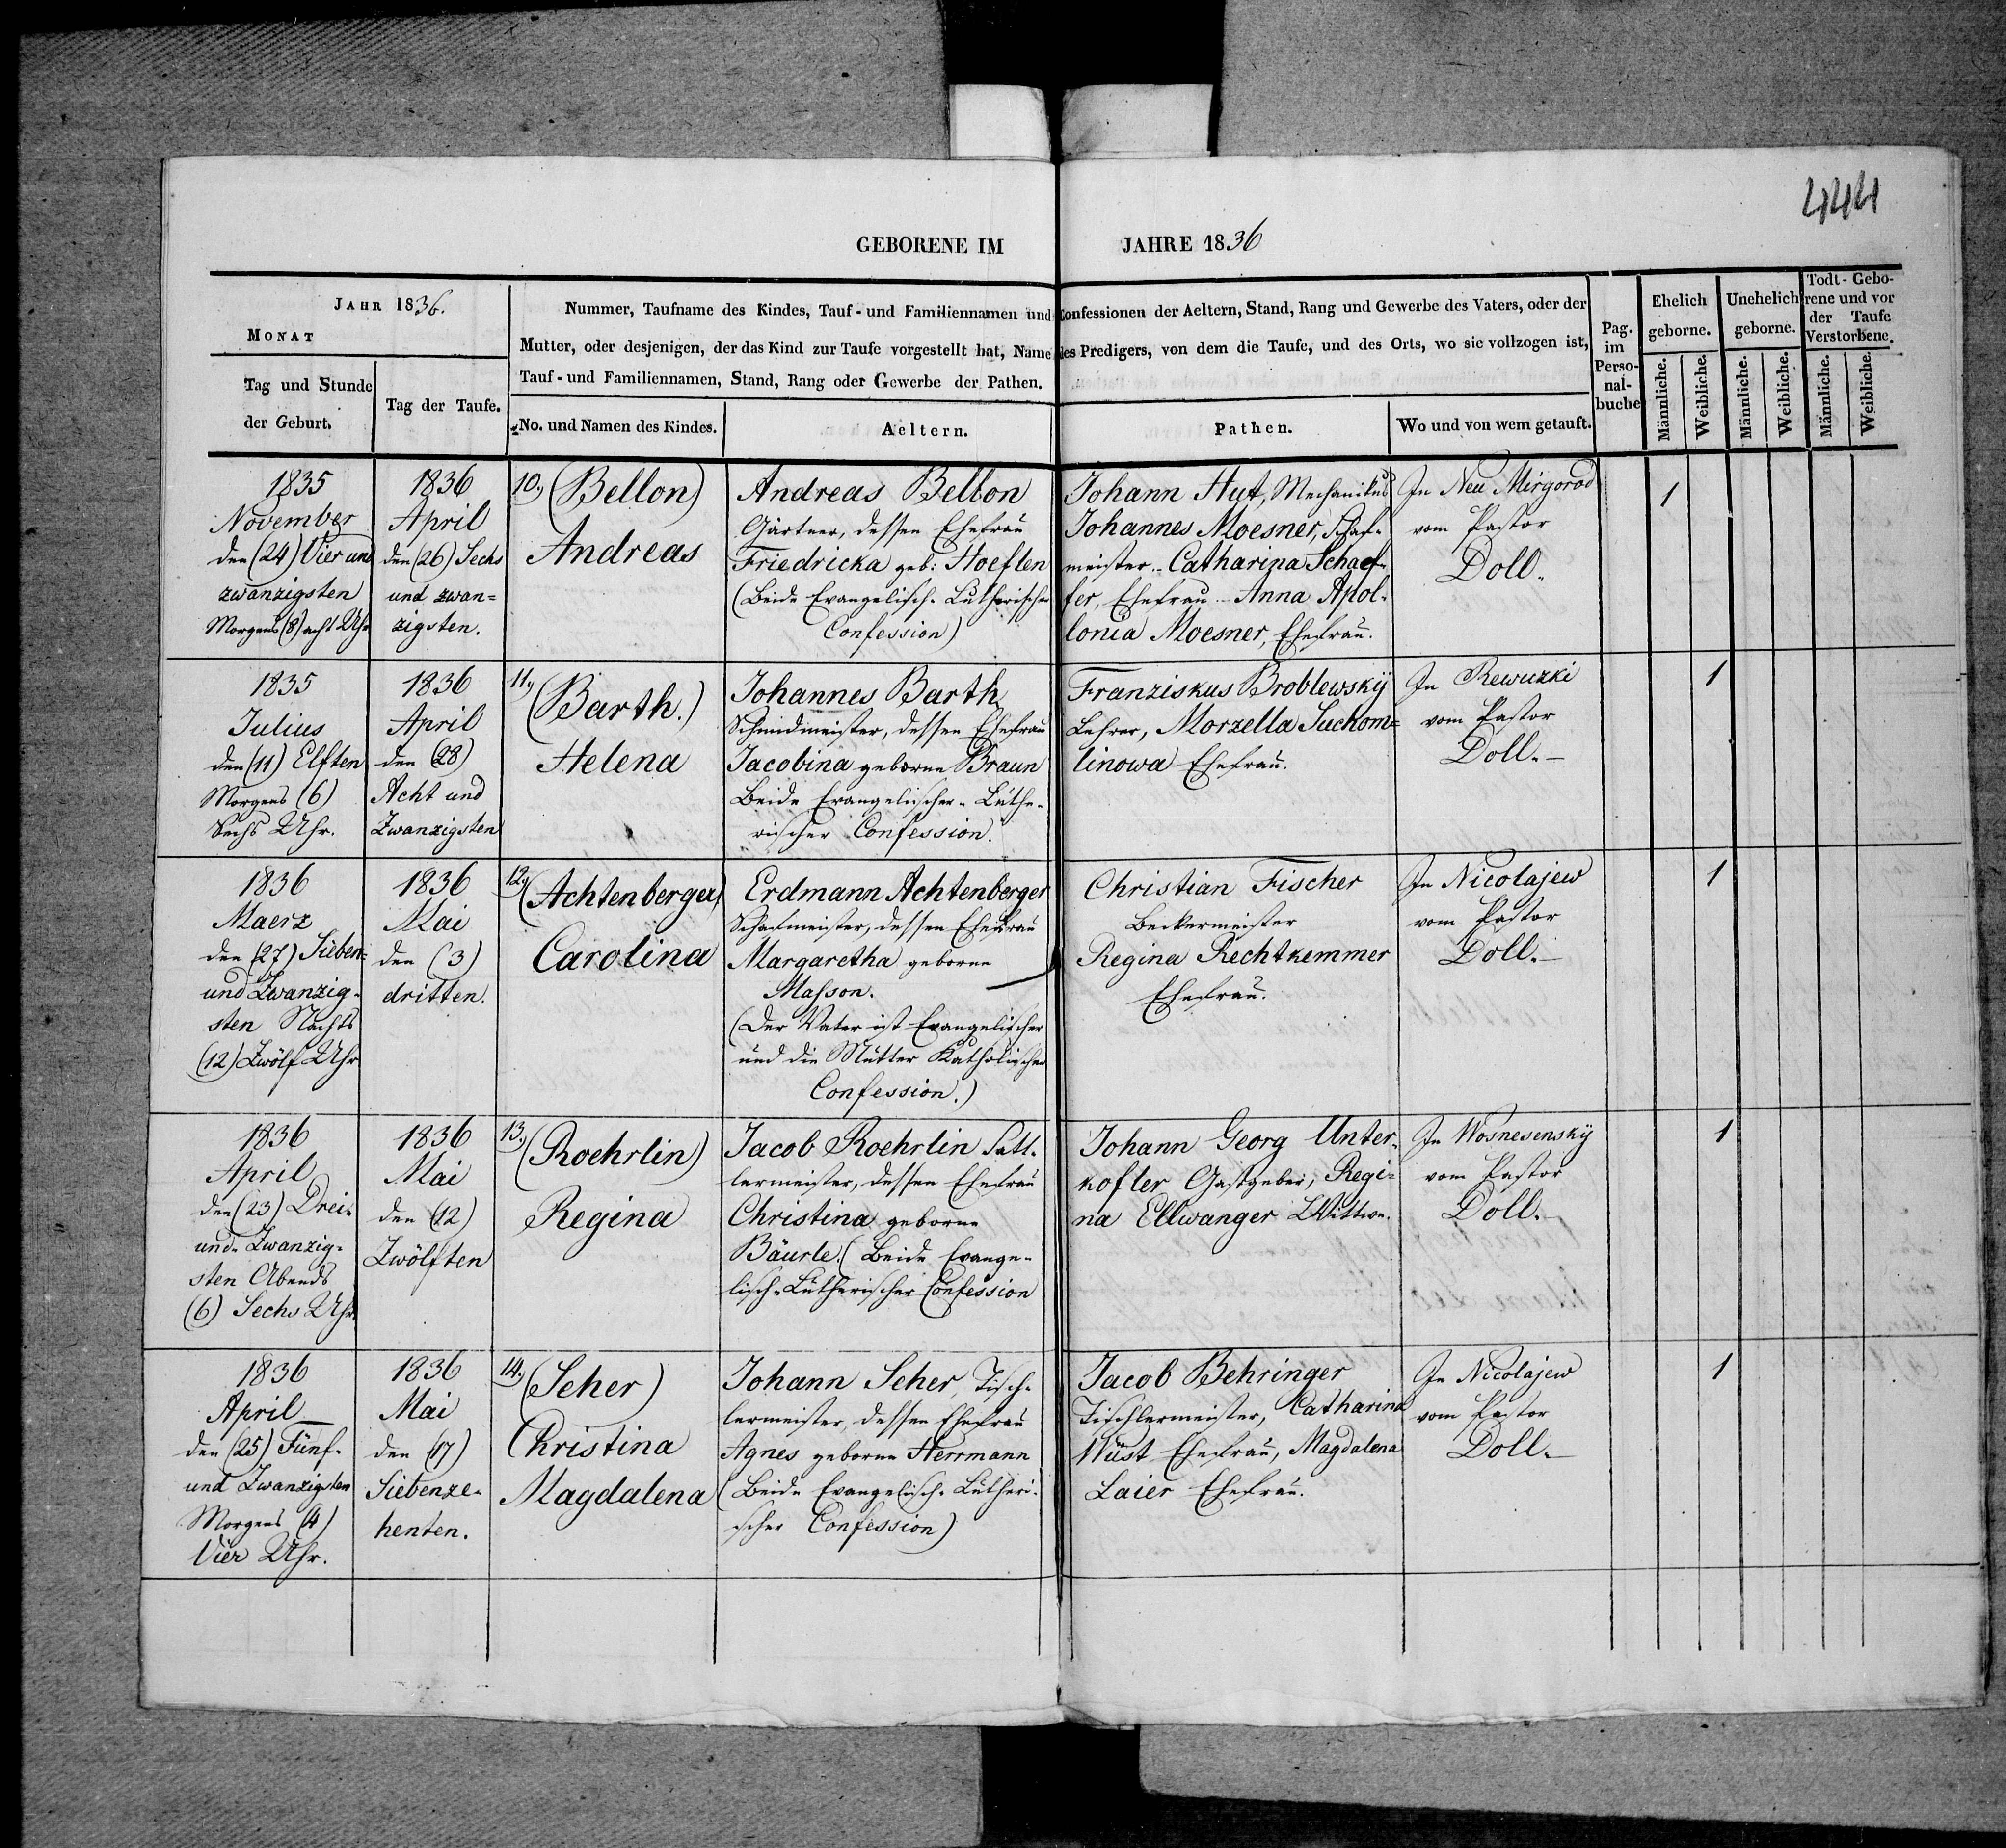 444
GEBORENE IM JAHRE 1836
JAHR 1836.
MONAT
Tag und Stunde
der Geburt.
Tag der Taufe.
Nummer, Taufname des Kindes, Tauf- und Familiennamen und Confessionen der Aeltern, Stand, Rang und Gewerbe des Vaters, oder der
Mutter, oder desjenigen, der das Kind zur Taufe vorgestellt hat, Name des Predigers, von dem die Taufe, und des Orts, wo sie vollzogen ist,
Tauf- und Familiennamen, Stand, Rang oder Gewerbe der Pathen.
No. und Namen des Kindes.
Aeltern.
Pathen.
Wo und von wem getauft.
Pag.
im
Perso-
nal-
buche
Ehelich
geborne.
Unehelich
geborne.
Todt-Gebo-
rene und vor
der Taufe
Verstorbene.
Männliche.
Weibliche.
Männliche.
Weibliche.
Männliche.
Weibliche.
1835
November
den (24) Vier und
zwanzigsten
Morgens (8) acht Uhr
1836
April
den (26) Sechs
und zwan=
zigsten.
10,, (Bellon)
Andreas
Andreas Bellon
Gärtner, dessen Ehefrau
Friedricka geb: Hoeflen
(Beide Evangelisch-Lutherischer
Confession)
Johann Hut, Mechanikus
Johannes Moesner, Schaf-
meister.- Catharina Schaef-
fer, Ehefrau.- Anna Apol-
lonia Moesner, Ehefrau.
In Neu Mirgorod
vom Pastor
Doll.
1
1835
Julius
den (11) Elften
Morgens (6)
Sechs Uhr.
1836
April
den (28)
Acht und
Zwanzigsten
11,,
(Barth.)
Helena
Johannes Barth
Schmidmeister, dessen Ehefrau
Jacobina geborne Braun
Beide Evangelischer-Luthe-
rischer Confession.
Franziskus Broblewskÿ
Lehrer, Morzella Suckom=
linowa Ehefrau.
In Rewuzki
vom Pastor
Doll.-
1
1836
Maerz
den (27) Sieben=
und Zwanzig-
sten Nachts
(12) Zwölf Uhr
1836
Mai
den (3)
dritten.
12,,
(Achtenberger)
Carolina
Erdmann Achtenberger
Schafmeister, dessen Ehefrau
Margaretha geborne
Masson.
(Der Vater ist Evangelischer
und die Mutter Katholischer
Confession.)
Christian Fischer
Beckermeister
Regina Rechtkemmer
Ehefrau.
In Nicolajew
vom Pastor
Doll.-
1
1836
April
den (23) Drei-
und Zwanzig-
sten Abends
(6) Sechs Uhr.
1836
Mai
den (12)
Zwölften
13,,
(Roehrlin)
Regina
Jacob Roehrlin Satt-
lermeister, dessen Ehefrau
Christina geborne
Bäurle. (Beide Evange-
lisch-Lutherischer Confession
Johann Georg Unter-
kofler Gastgeber, Regi-
na Ellwanger Wittwe.
In Wosnesenskÿ
vom Pastor
Doll.-
1
1836
April
den (25) Fünf-
und Zwanzigsten
Morgens (4)
Vier Uhr.
1836
Mai
den (17)
Siebenze-
henten.
14,,
(Seher)
Christina
Magdalena
Johann Seher, Tisch-
lermeister, dessen Ehefrau
Agnes geborne Herrmann
(Beide Evangelisch-Lutheri-
scher Confession)
Jacob Behringer
Tischlermeister, Catharina
Wüst Ehefrau, Magdalena
Laier Ehefrau.
In Nicolajew
vom Pastor
Doll.-
1